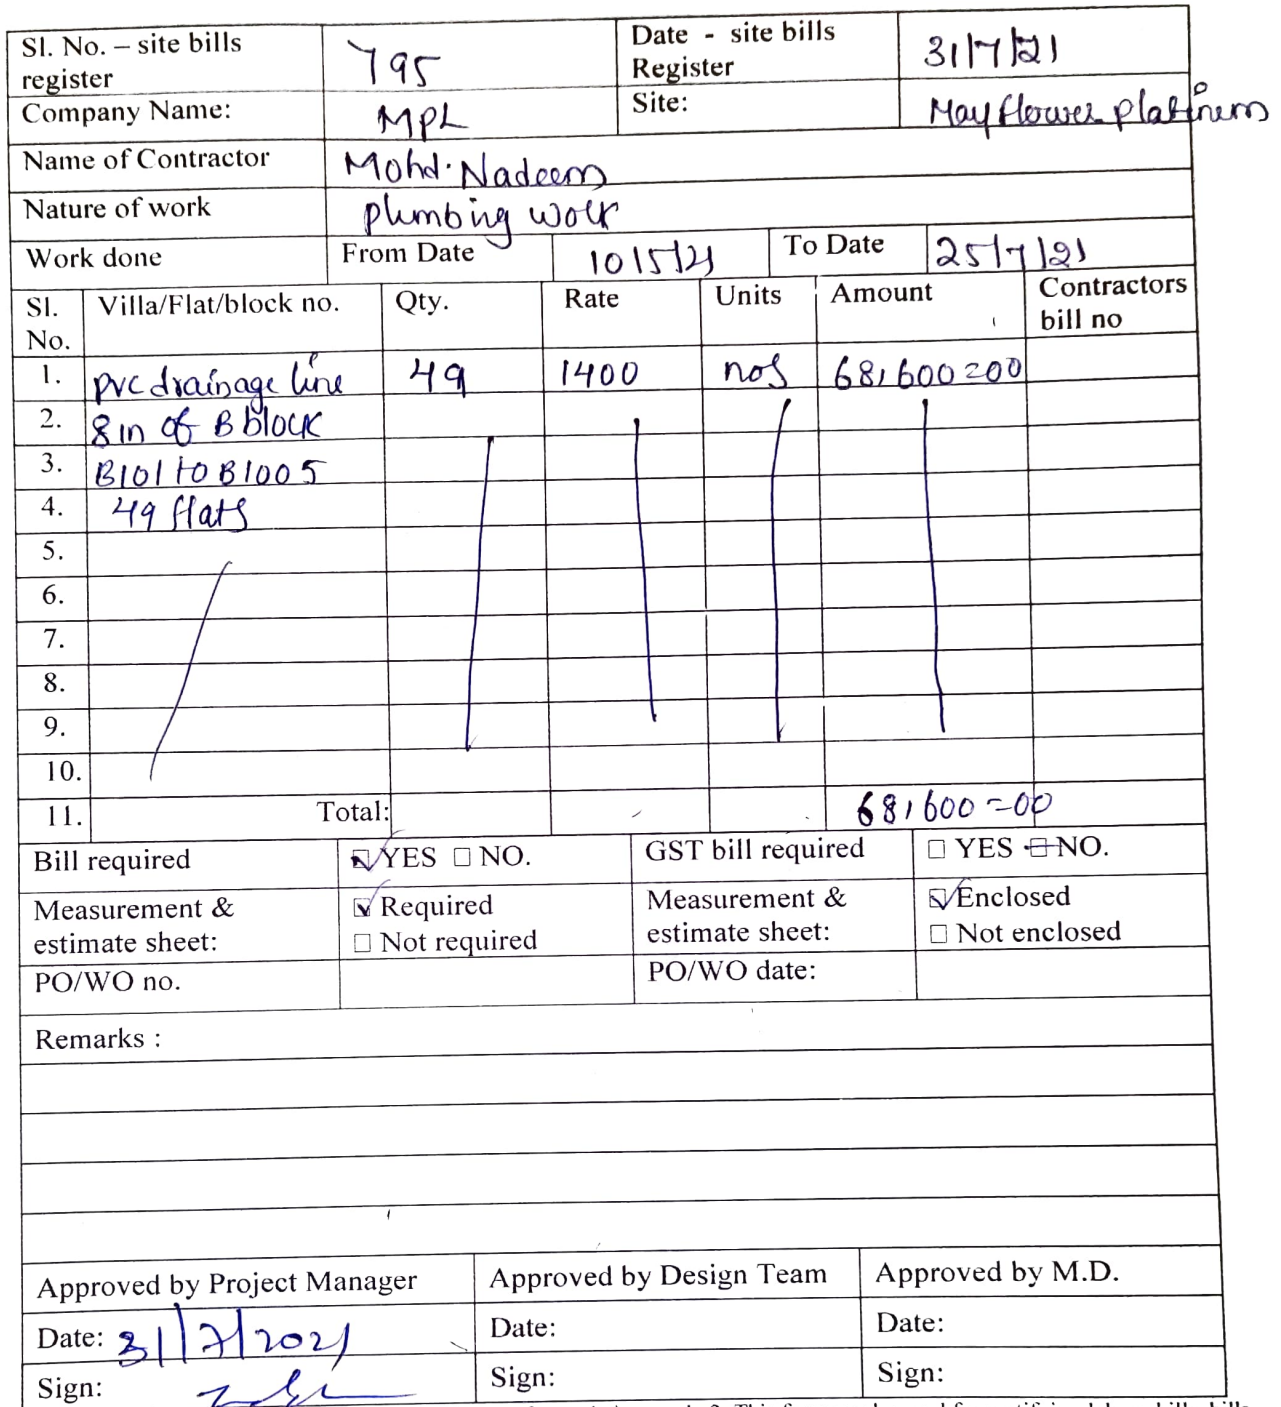 Sl. No. – site bills register 795 Date - site bills Register 31/7/21
Company Name: MPL Site: Mayflower platinum
Name of Contractor Mohd. Nadeem
Nature of work plumbing work
Work done From Date 10/5/21 To Date 25/7/21
Sl. No. Villa/Flat/block no. Qty. Rate Units Amount Contractors bill no
1. pvc drainage line 49 1400 nos 68,600=00
2. 8 in of B block
3. B101 to B1005
4. 49 flats
5.
6.
7.
8.
9.
10.
11. Total: 68,600=00
Bill required YES NO. GST bill required YES NO.
Measurement & estimate sheet: Required Not required Measurement & estimate sheet: Enclosed Not enclosed
PO/WO no. PO/WO date:
Remarks :
Approved by Project Manager Approved by Design Team Approved by M.D.
Date: 31/7/2021 Date: Date:
Sign: Sign: Sign: